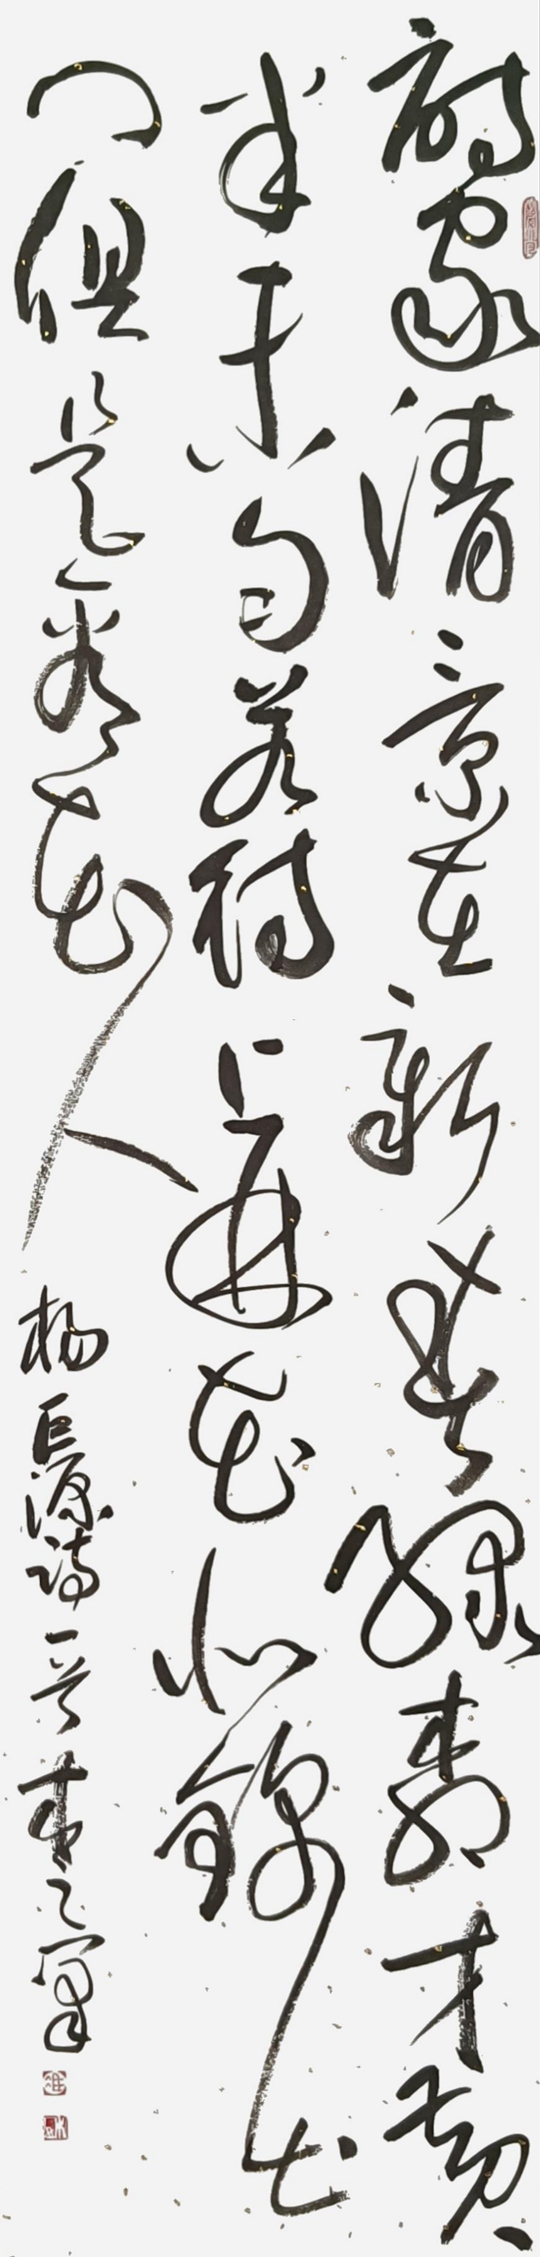 詩家清景在新春綠柳才黃
半未勻若待上林花似錦出
門俱是看花人 楊巨源詩一首